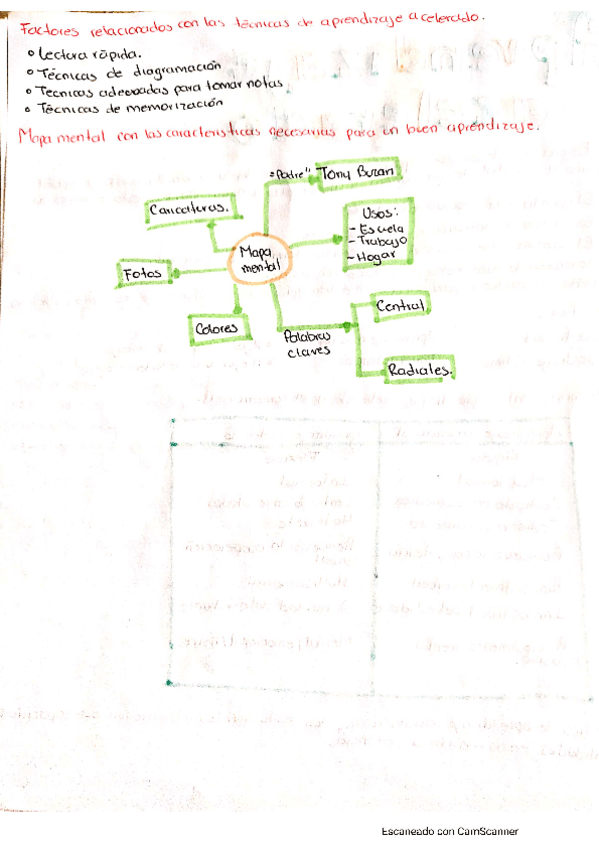 Factores relacionados con las técnicas de aprendizaje acelerado.
Lectura rápida.
Técnicas de diagramación
Tecnicas adecuadas para tomar notas
Técnicas de memorización
Mapa mental con las características necesarias para un buen aprendizaje.
"Padre" Tony Buzan
Usos:
- Escuela
- Trabajo
- Hogar
Mapa mental
Fotos
Colores
Palabras claves
Central
Radiales.
Escaneado con CamScanner